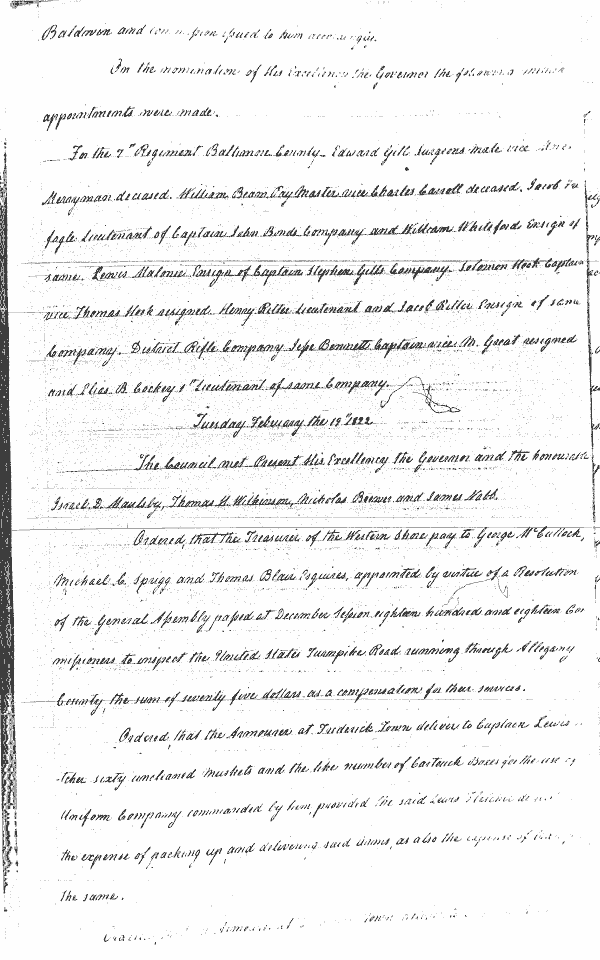 Baldwin and commission issued to him accordingly.
On the nomination of His Excellency the Governor the following
appointments were made.
For the 7th Regiment Baltimore County. Edward Gill Surgeons Mate vice
Merryman deceased. William Beam Pay Master vice Charles Carroll deceased. Jacob
fogle Lieutenant of Captain John Bonds Company and William Whiteford Ensign of
same. Lewis Malonie Ensign of Captain Stephen Gills Company. Solomon Hook Captain
vice Thomas Hook resigned. Henry Ritter Lieutenant and Jacob Ritter Ensign of same
Company. District Rifle Company Jesse Bennett Captain vice M. Great resigned
and Elias B. Cockey 1st Lieutenant of same Company.
Tuesday February the 19th 1822
The Council met Present His Excellency the Governor and the honourable
Israel D. Maulsby, Thomas H. Wilkinson, Nicholas Brewer and James Nabb.
Ordered, that the Treasurer of the Western Shore pay to George McCullock,
Michael C. Sprigg and Thomas Blair Esquires, appointed by virtue of a Resolution
of the General Assembly passed at December Session eighteen hundred and eighteen Com
missioners to inspect the United States Turnpike Road running through Allegany
County, the sum of seventy five dollars as a compensation for their services.
Ordered, that the Armourer at Frederick Town deliver to Captain Lewis
-tcher sixty uncleaned muskets and the like number of Cartouch Boxes for the use of
Uniform Company commanded by him, provided the said Lewis Fletcher
the expense of packing up and delivering said arms, as also the expense of
the same.
Armourer at Town